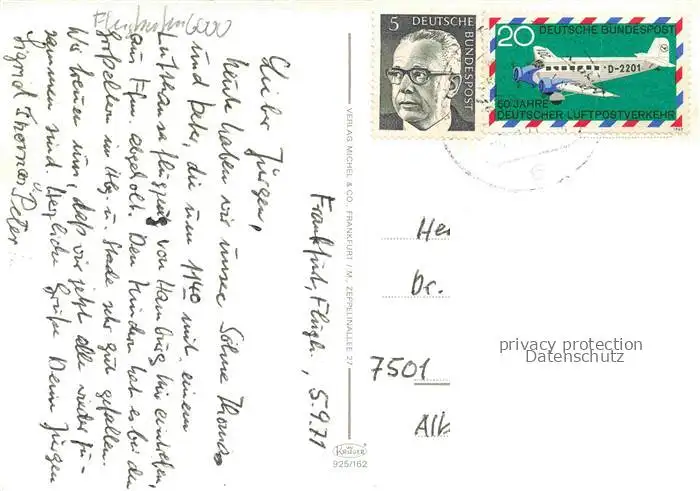 Flughafen 6000
Frankfurt, Flugh., 5.9.71
Lieber Jürgen,
heute haben wir unsere Söhne Thomas
und Peter, die um 1140 mit einem
Lufthansaflugzeug von Hamburg hier eintrafen,
am Fhm. abgeholt. Den Kindern hat es bei den
Großeltern in Hbg. u. Stade sehr gut gefallen.
Wir freuen uns, daß wir jetzt alle wieder zu-
sammen sind. Herzliche Grüße Deine Jürgen
Sigrid Thomas Peter
VERLAG MICHEL & CO., FRANKFURT/M., ZEPPELINALLEE 27
KRÜGER
925/162
5 DEUTSCHE BUNDESPOST
20 DEUTSCHE BUNDESPOST
D-2201
50 JAHRE
DEUTSCHER LUFTPOSTVERKEHR
1969
Her
Dr.
7501
privacy protection
Datenschutz